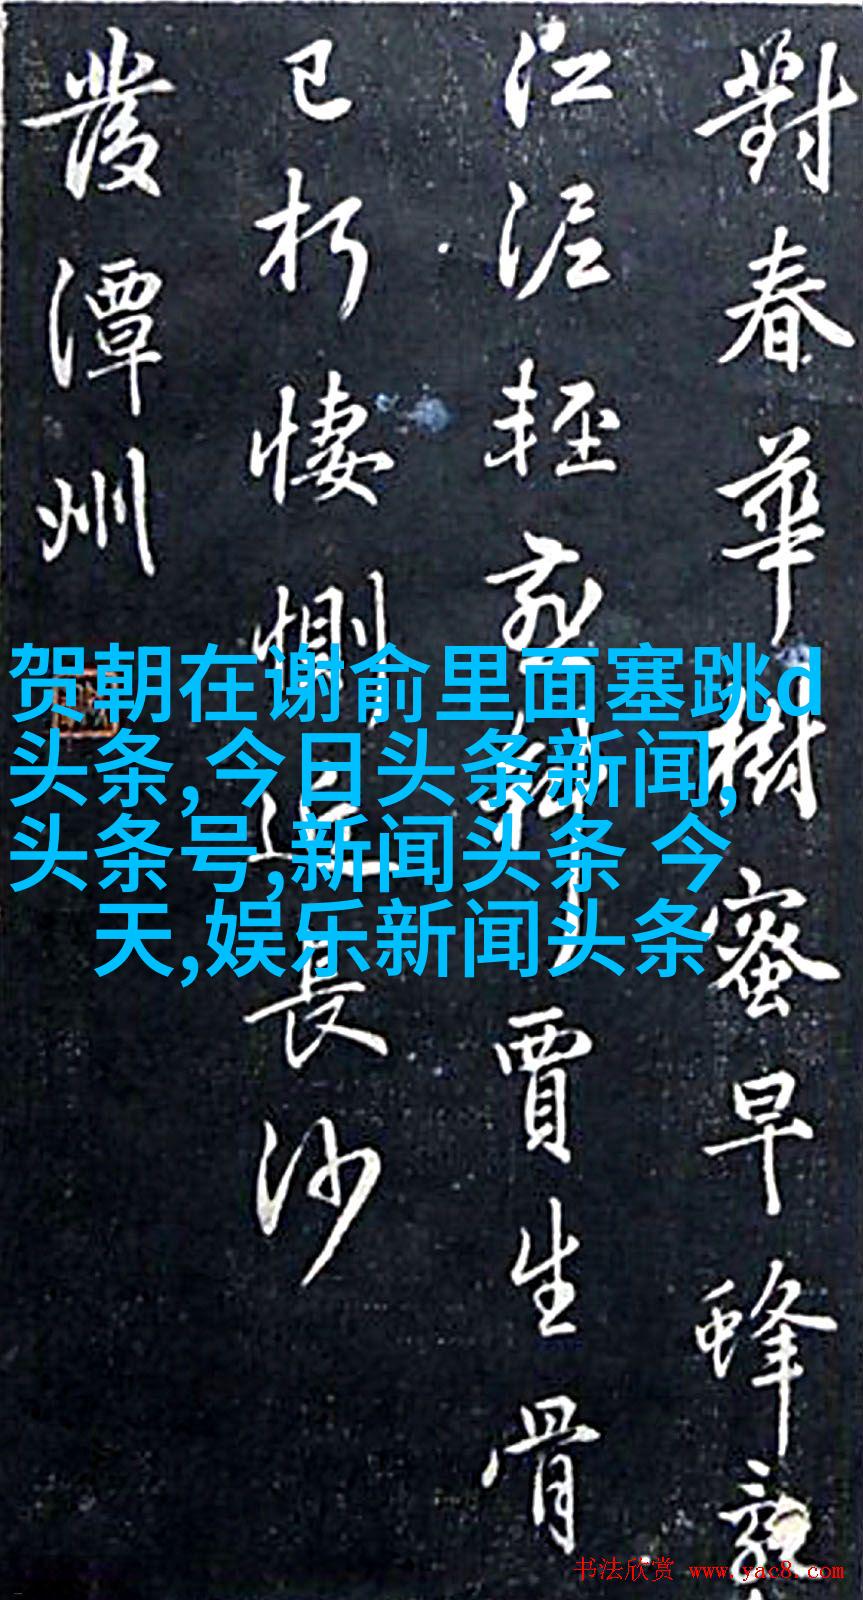 對春華樹蜜早蜂亂
江泥輕燕斜賈生骨
已朽悽惻近長沙
發潭州
贺朝在谢俞里面塞跳d
头条,今日头条新闻,
头条号,新闻头条 今
天,娱乐新闻头条
书法欣赏 www.yac8.com